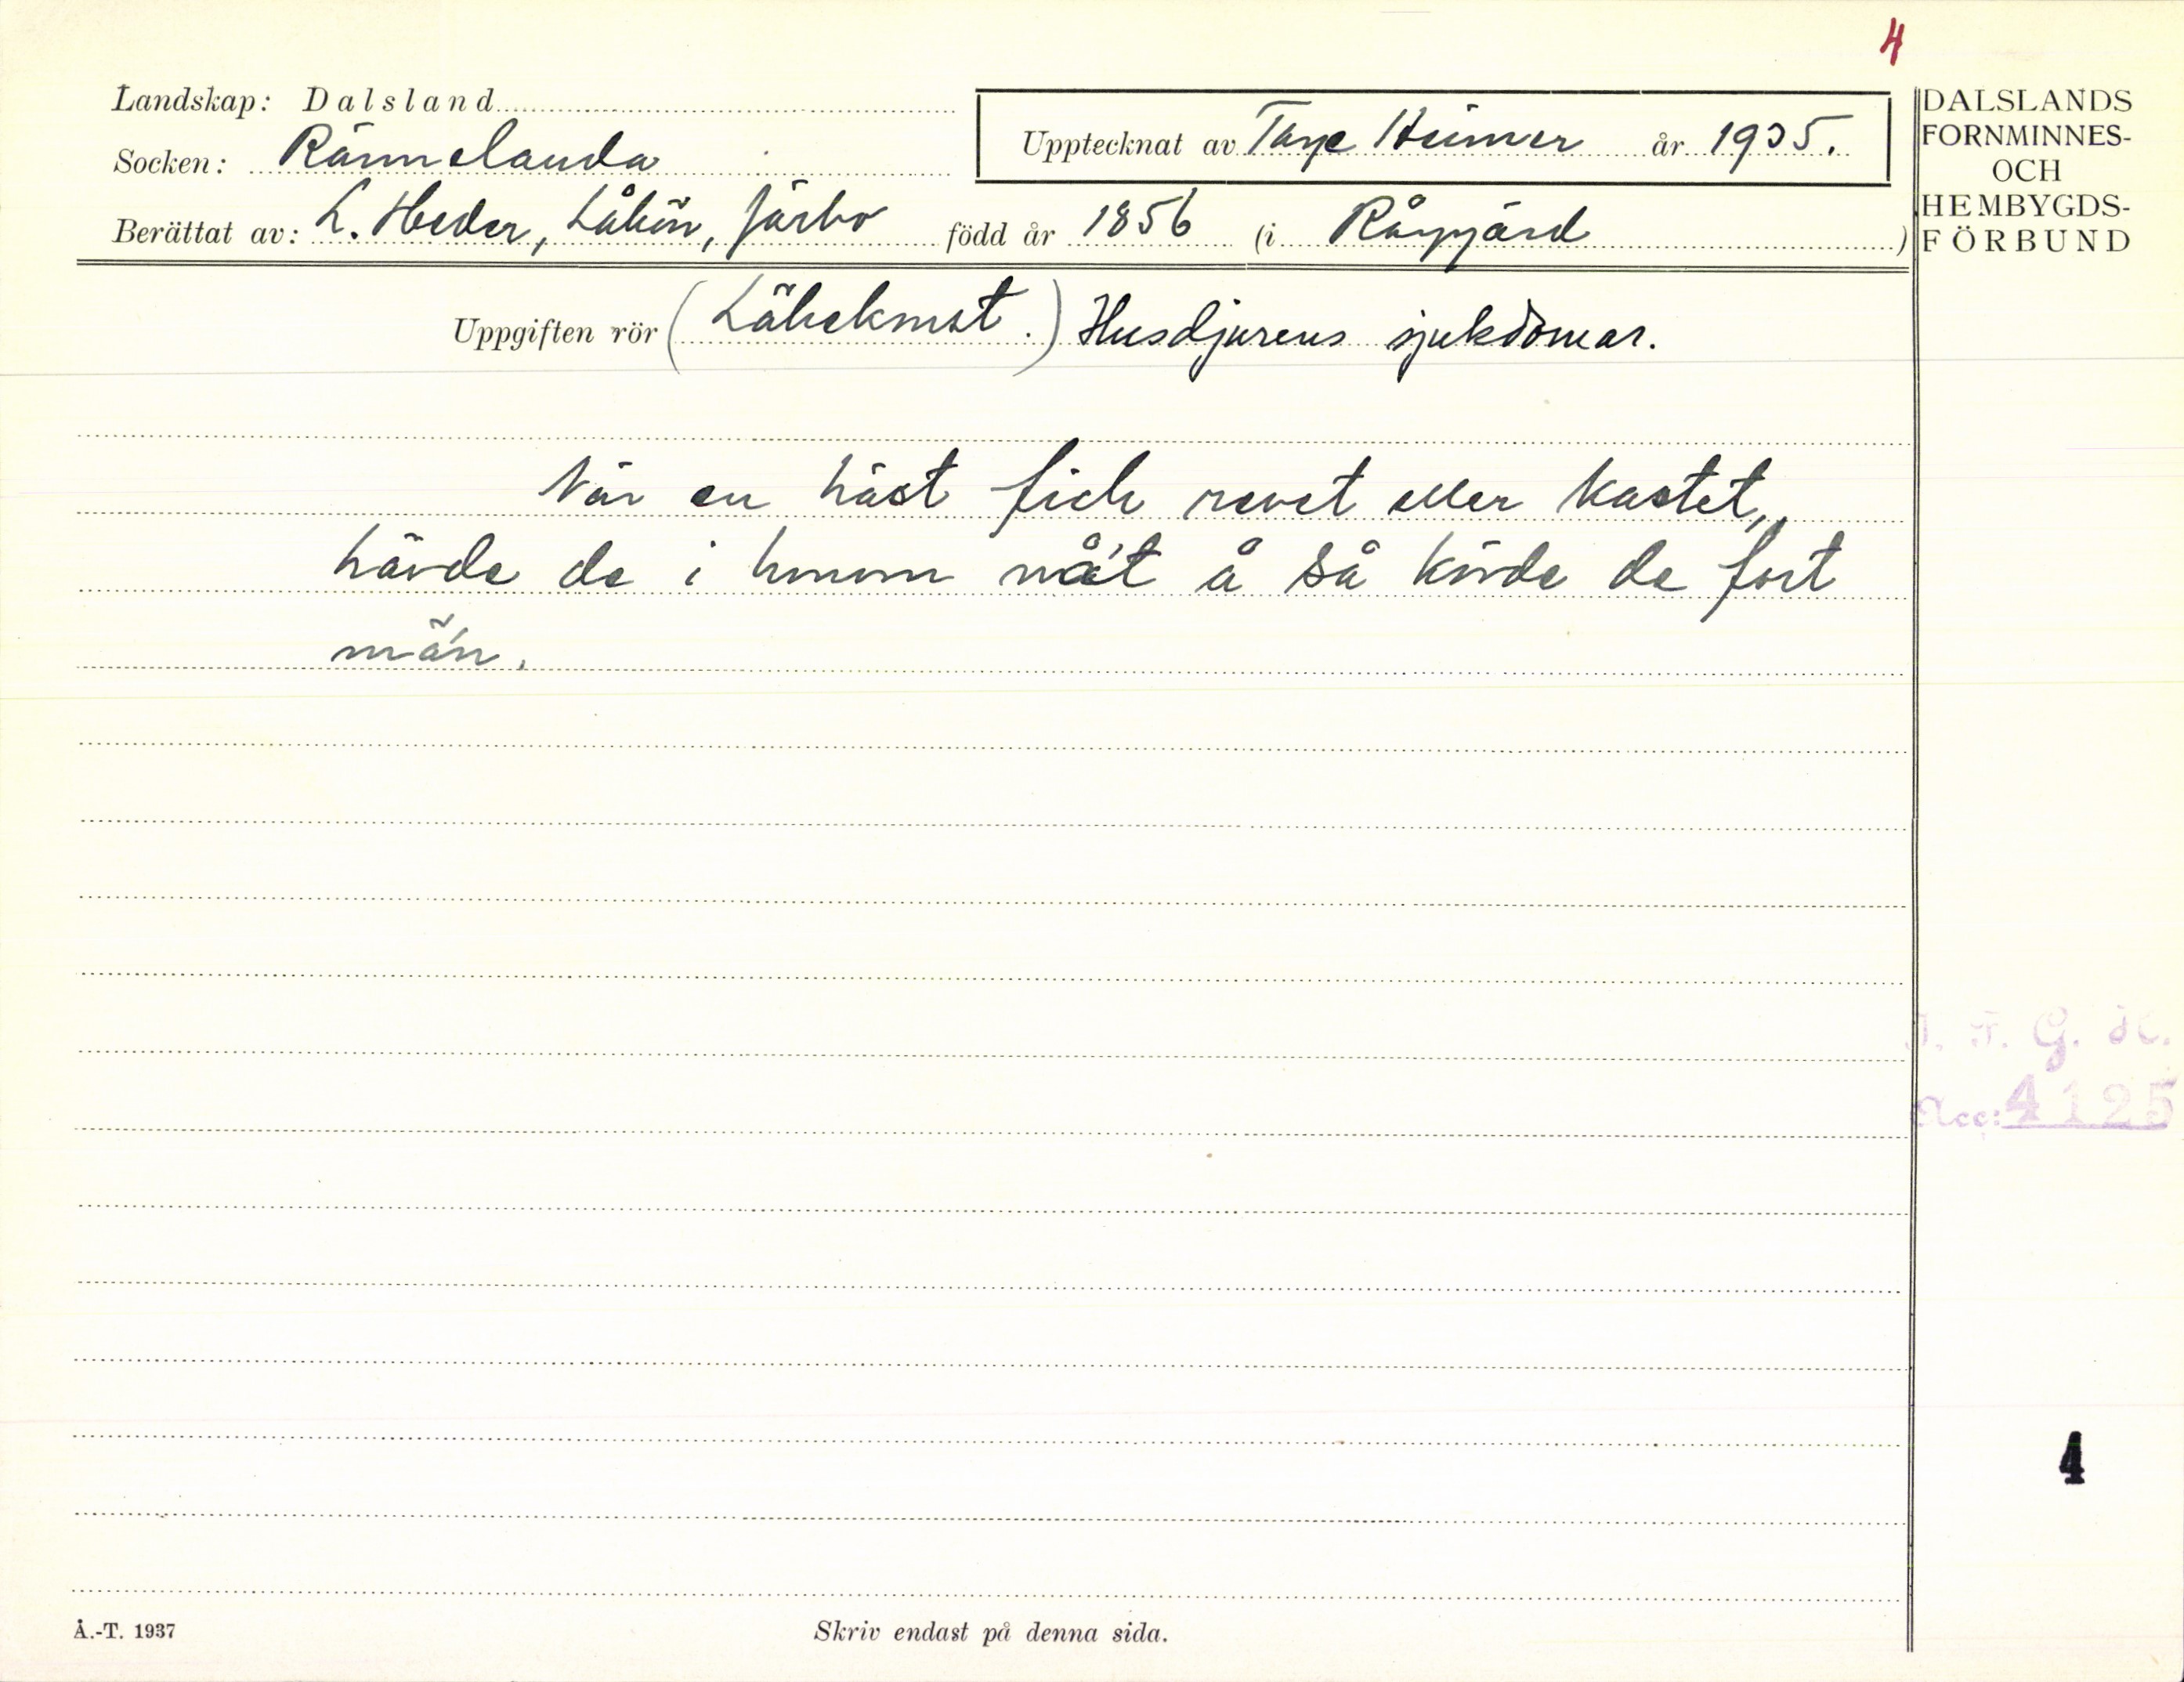 4
Landskap: Dalsland
Socken: Rännelanda
Upptecknat av Tage Heimer år 1935.
Berättat av: L. Heder, Låkön, Järbo född år 1856 (i Råggärd)
DALSLANDS
FORNMINNES-
OCH
HEMBYGDS-
FÖRBUND
Uppgiften rör (Läkekonst.) Husdjurens sjukdomar.
När en häst fick revet eller kastet,
hävde de i honom nåt å så körde de fort
män.
I. F. G. H.
Acc: 4125
4
Å.-T. 1937
Skriv endast på denna sida.